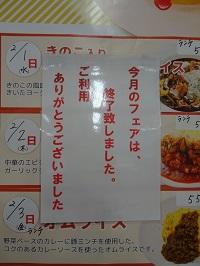 2/1
(水)
きのこ入り
きのこの風
きいたヨー
ランチ
イス
今月のフェアは、
終了致しました。
ご利用
ありがとうございました
2/2
(木)
中華のエビ
ガーリック
2/3
(金)
ランチ
オムライス
野菜ベースのカレーに鶏ミンチを使用した、
コクのあるカレーソースを使ったオムライスです。